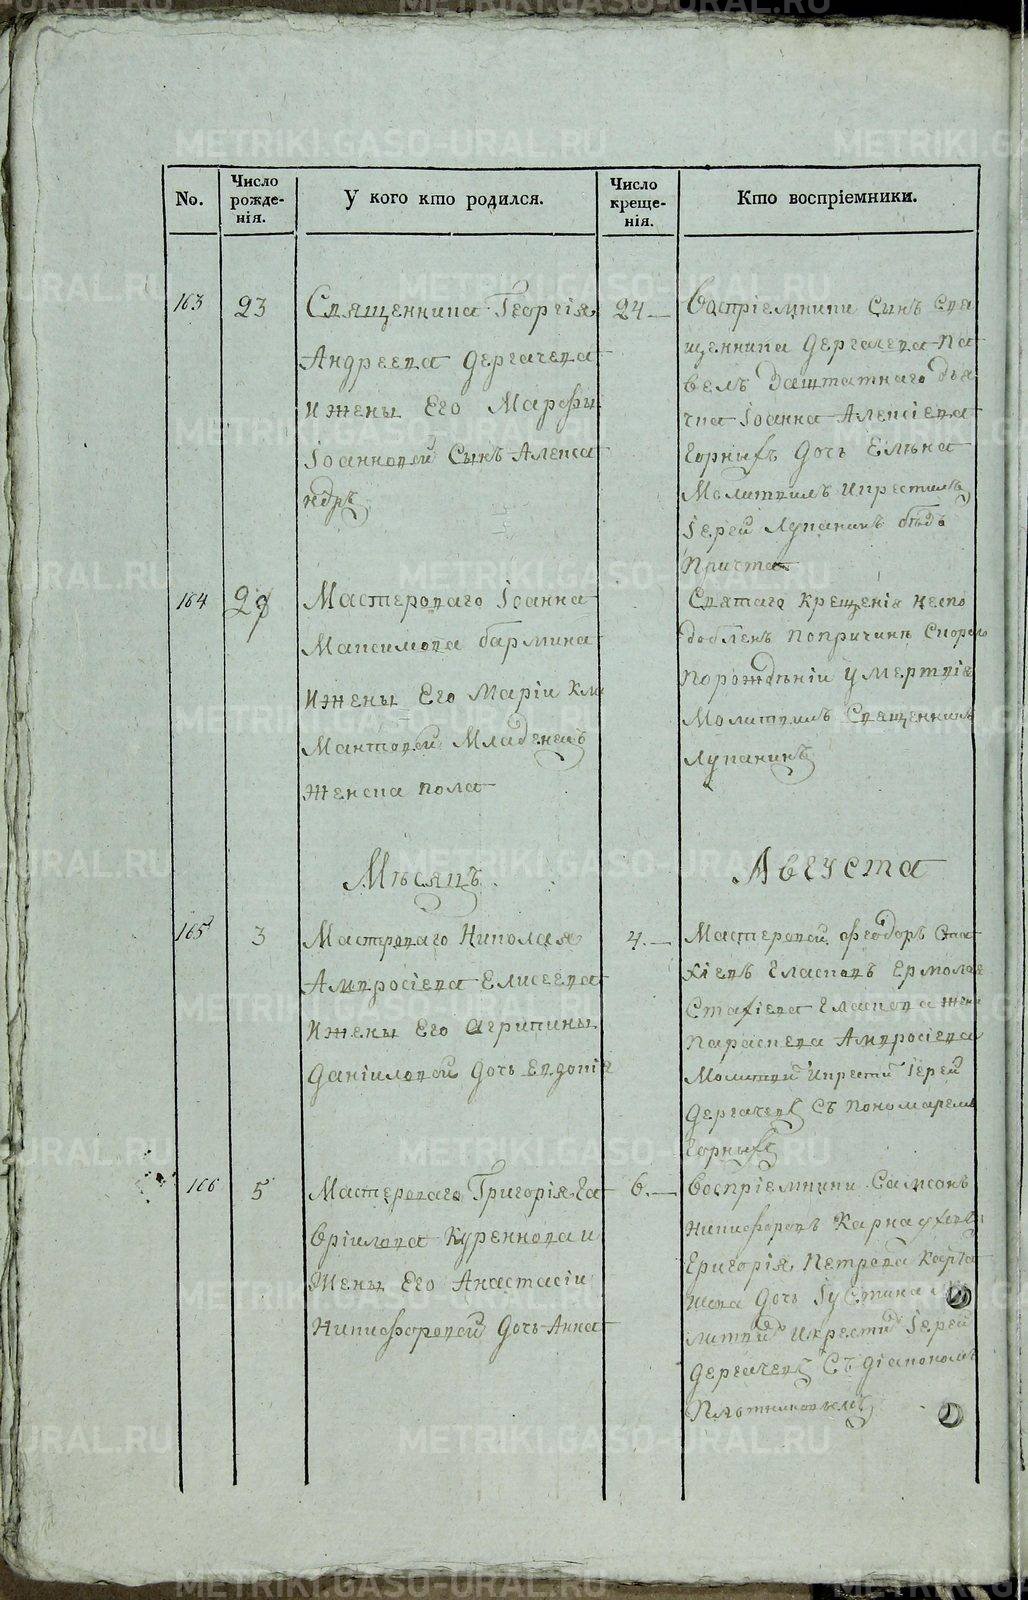 No.
Число рожде-нія.
У кого кто родился.
Число креще-нія.
Кто воспріемники.
163
23
Священника Георгія
Андреева Дергачева
ижены Его Марфы
Іоанновой Сынъ Алекса
ндръ
24
Воспріемники Сынъ Свя
щенника Дергачева Па
велъ Заштатнаго дья
чка Іоанна Алексіева
Горныхъ Дочь Елѣна
Молитвилъ икрестилъ
Іерей Лупанинъ безъ
Причта
164
29
Мастероваго Іоанна
Максимова бармина
ижены Его Маріи Кли
Мантовой Младенецъ
женска пола
Святаго Крещенія неспо
добленъ попричинѣ Скораго
порожденіи умертвія
Молитвилъ Священникъ
Лупанинъ
Мѣсяцъ
Августа
165
3
Мастероваго Николая
Амвросіева Елисеева
ижены Его Агрипины
Даніиловой Дочь Евдокія
4.
Мастеровой Феодоръ Ста
хіевъ Гласковъ Ермолая
Стахіева Гласкова жена
Параскева Амвросіева
Молитвй икрестй Іерей
Дергачевъ Съ пономаремъ
Горныхъ
166
5
Мастероваго Григорія Га
вріилова Куреннова и
Жены Его Анастасіи
Никифоровой Дочь Анна
6.
Воспріемники Самсонъ
Никифоровъ Карнауховъ
Григорія Петрова Карна
Дочь Іустина
литвй Икрестй Іерей
Дергачевъ Съ діакономъ
Плотниковымъ
METRIKI.GASO-URAL.RU